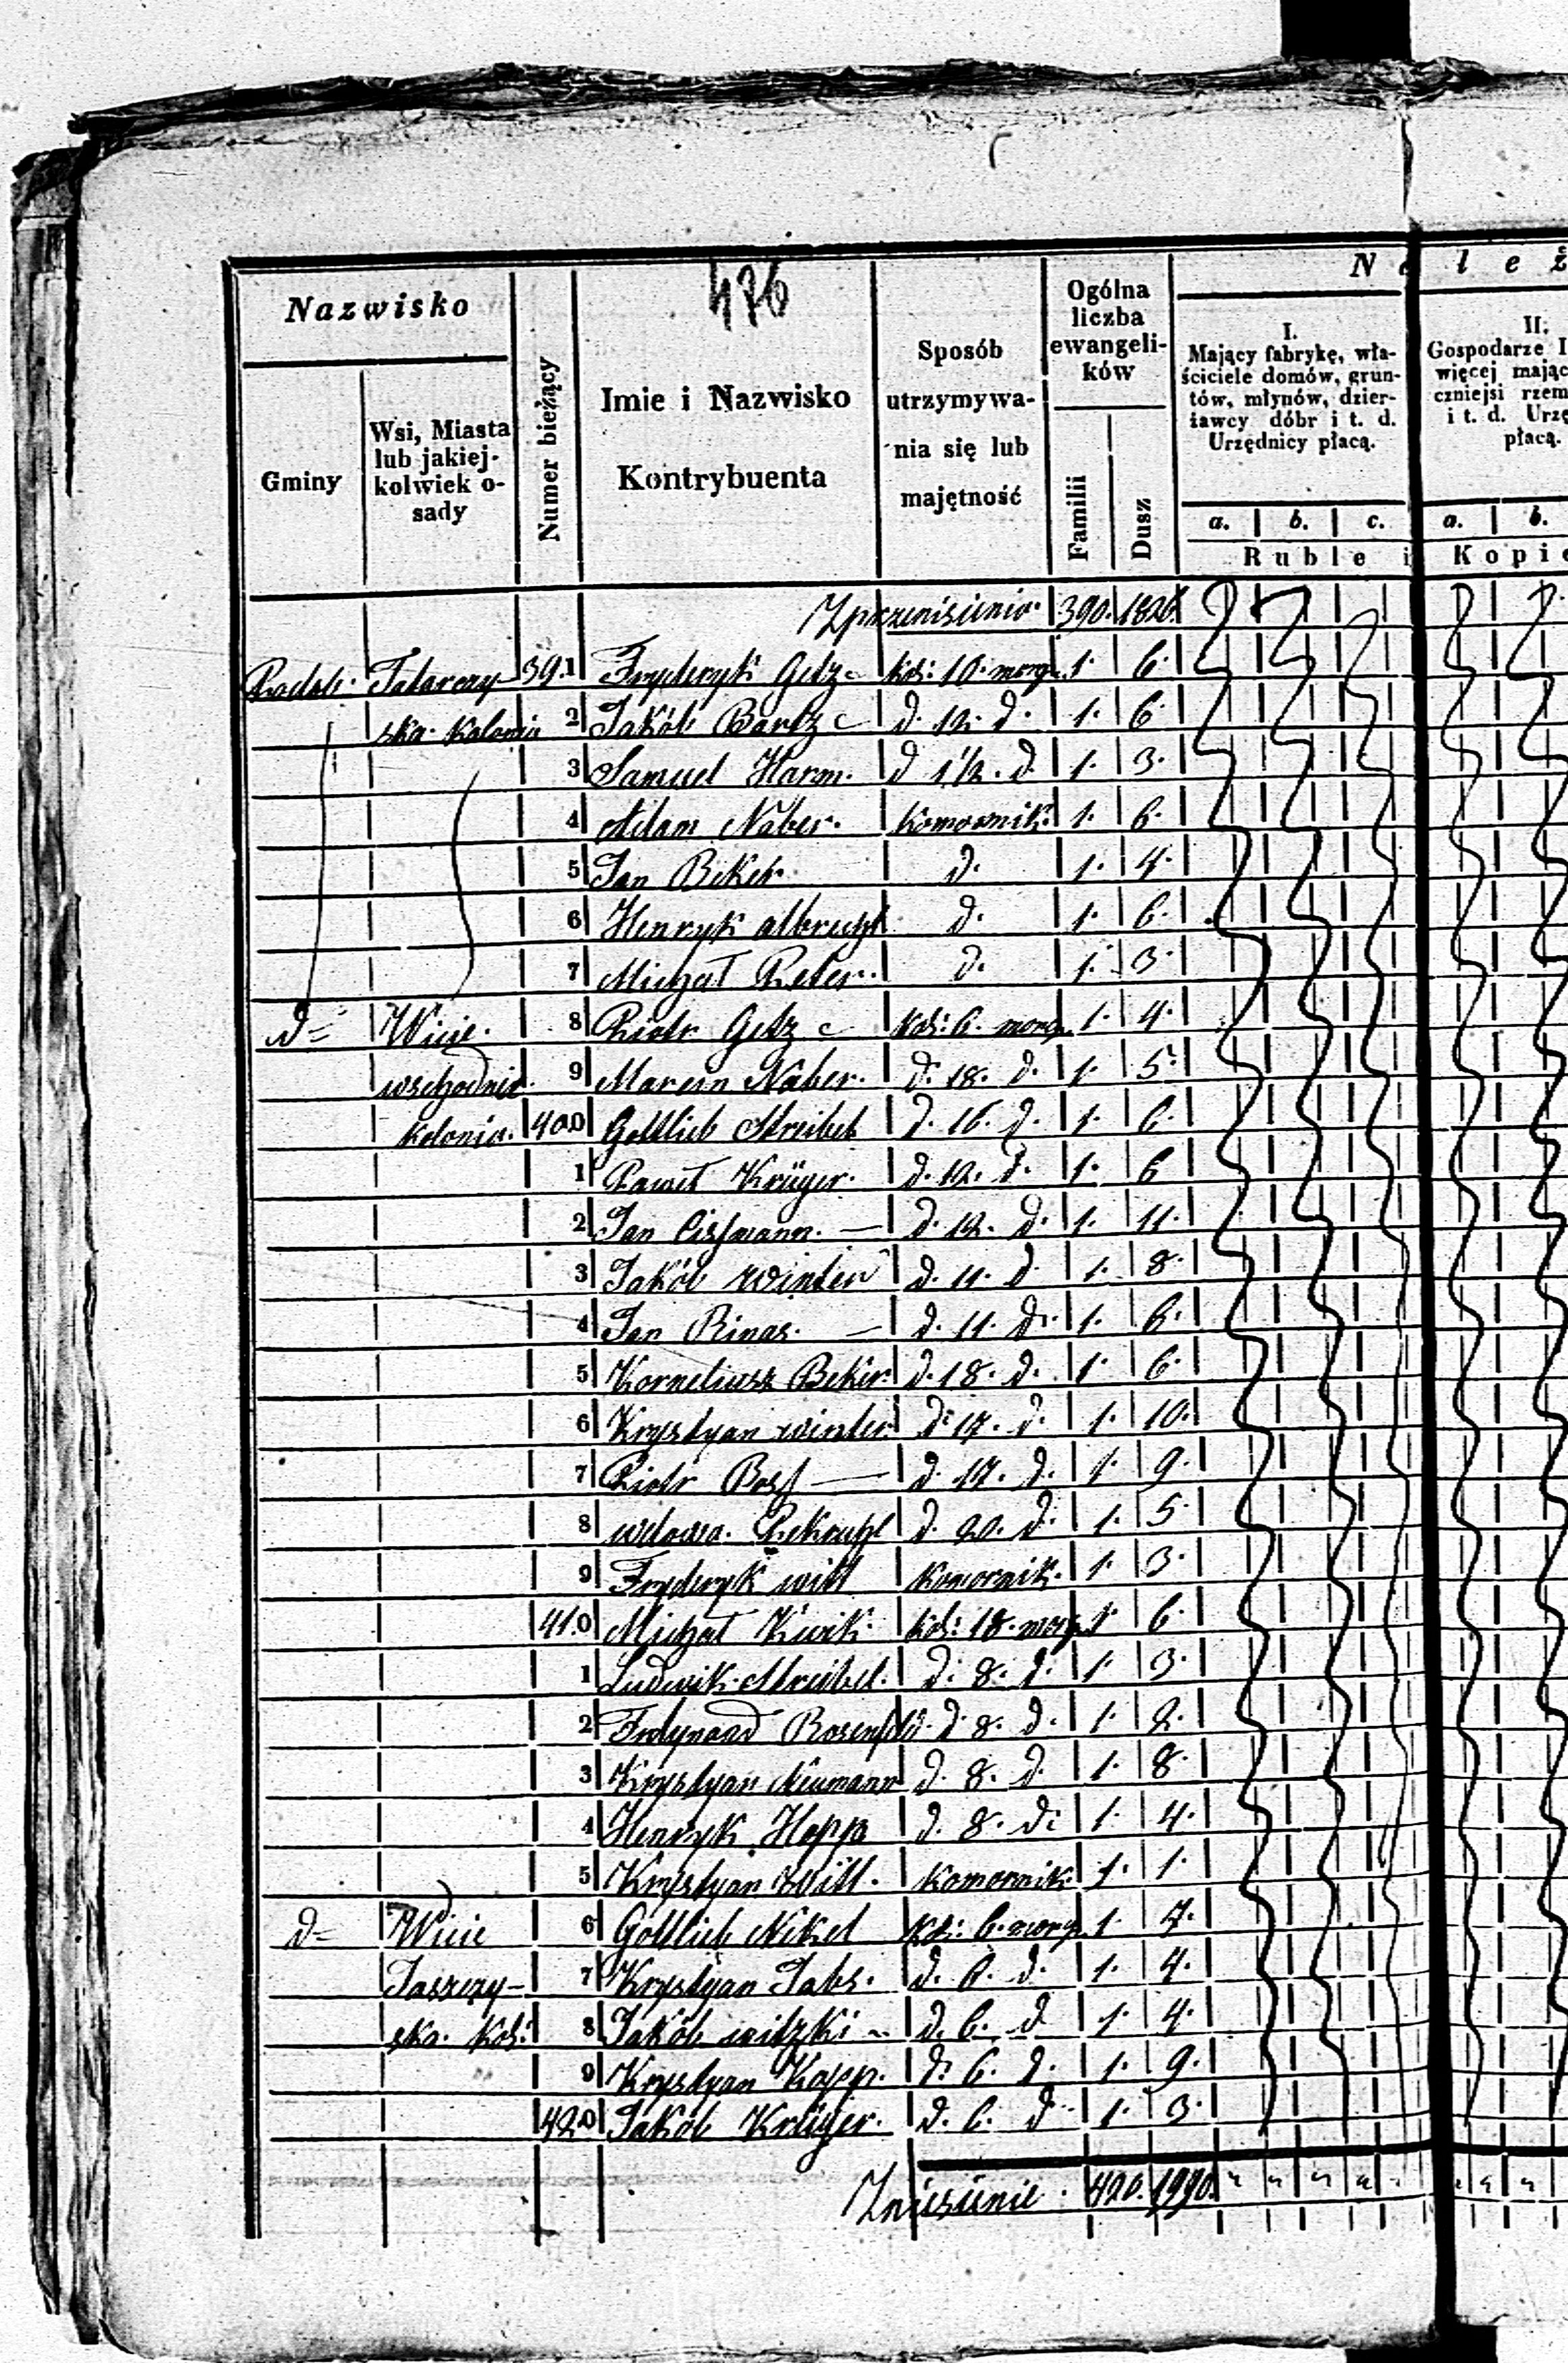 476
Nazwisko
Gminy
Wsi, Miasta lub jakiej-kolwiek o-sady
Numer bieżący
Imie i Nazwisko Kontrybuenta
Sposób utrzymywa-nia się lub majętność
Ogólna liczba ewangeli-ków
Familii
Dusz
N a l e ż
I.
Mający fabrykę, wła-
ściciele domów, grun-
tów, młynów, dzier-
żawcy dóbr i t. d.
Urzędnicy płacą.
II.
Gospodarze
więcej mając
czniejsi rzem
i t. d. Urzę
płacą.
a. b. c. a. b.
Ruble i Kopie
Zprzeniesienia 390. 1826.
Tatarczy 39.1 Fryderyk Getz kol: 10. morg. 1. 6.
ska. kolonia 2 Jakób Bartz d. 12. d. 1. 6.
3 Samuel Harm. d 1 1/2. d. 1. 3.
4 Adam Naber. komornik. 1. 6.
5 Jan Beker. d. 1. 4.
6 Henryk albrecht d. 1. 6.
7 Michał Peter. d. 1. 3.
d= Wicie. 8 Piotr Getz kol: 6. morg. 1. 4.
wschodnie. 9 Marcin Naber. d. 18. d. 1. 5.
kolonia. 400 Gottlieb Streibel d. 16. d. 1. 6.
1 Paweł Krüger. d. 12. d. 1. 6
2 Jan d. 12. d. 1. 11.
3 Jakób winter d. 11. d. 1. 8.
4 Jan Rinas. d. 11. d. 1. 6.
5 Korneliusz Beker. d. 18. d. 1. 6.
6 Krystyan winter. d. 17. d. 1. 10.
7 Piotr d. 17. d. 1. 9.
8 wdowa. d. 20. d. 1. 5.
9 Fryderyk witt komornik. 1. 3.
410 Michał Kwik. kol: 18. morg. 1. 6.
1 Ludwik Streibel. d. 8. d. 1. 3.
2 Ferdynand d. 8. d. 1. 2.
3 Krystyan Neumann d. 8. d. 1. 8.
4 Henryk Hopp d. 8. d. 1. 4.
5 Krystyan Witt. komornik. 1. 1.
d= Wicie 6 Gottlieb Nikel kol: 6. morg. 1. 7.
7 Krystyan Jabs. d. 6. d. 1. 4.
ska. kol: 8 Jakób witzki d. 6. d. 1. 4.
9 Krystyan Kopp. d. 6. d. 1. 9.
420 Jakób Krüger. d. 6. d. 1. 3.
Zniesienie 420. 1990.